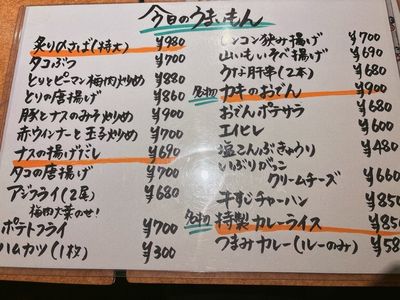 今日のうまいもん
炙りひさば(特大) ¥980
タコぶつ ¥700
とりとピーマン梅肉炒め ¥880
とりの唐揚げ ¥860
豚とナスのみそ炒め ¥900
赤ウインナーと玉子炒め ¥700
ナスの揚げだし ¥690
タコの唐揚げ ¥700
アジフライ(2尾) ¥680
梅肉大葉のせ!
ポテトフライ ¥700
ハムカツ(1枚) ¥300
レンコン挟み揚げ ¥700
山いもいそべ揚げ ¥690
うなぎ肝串(2本) ¥680
名物 カキのおでん ¥900
おでんポテサラ ¥680
エイヒレ ¥600
塩こんぶきゅうり ¥480
いぶりがっこ
クリームチーズ ¥660
牛すじチャーハン ¥850
名物 特製カレーライス ¥850
つまみカレー(ルーのみ) ¥58